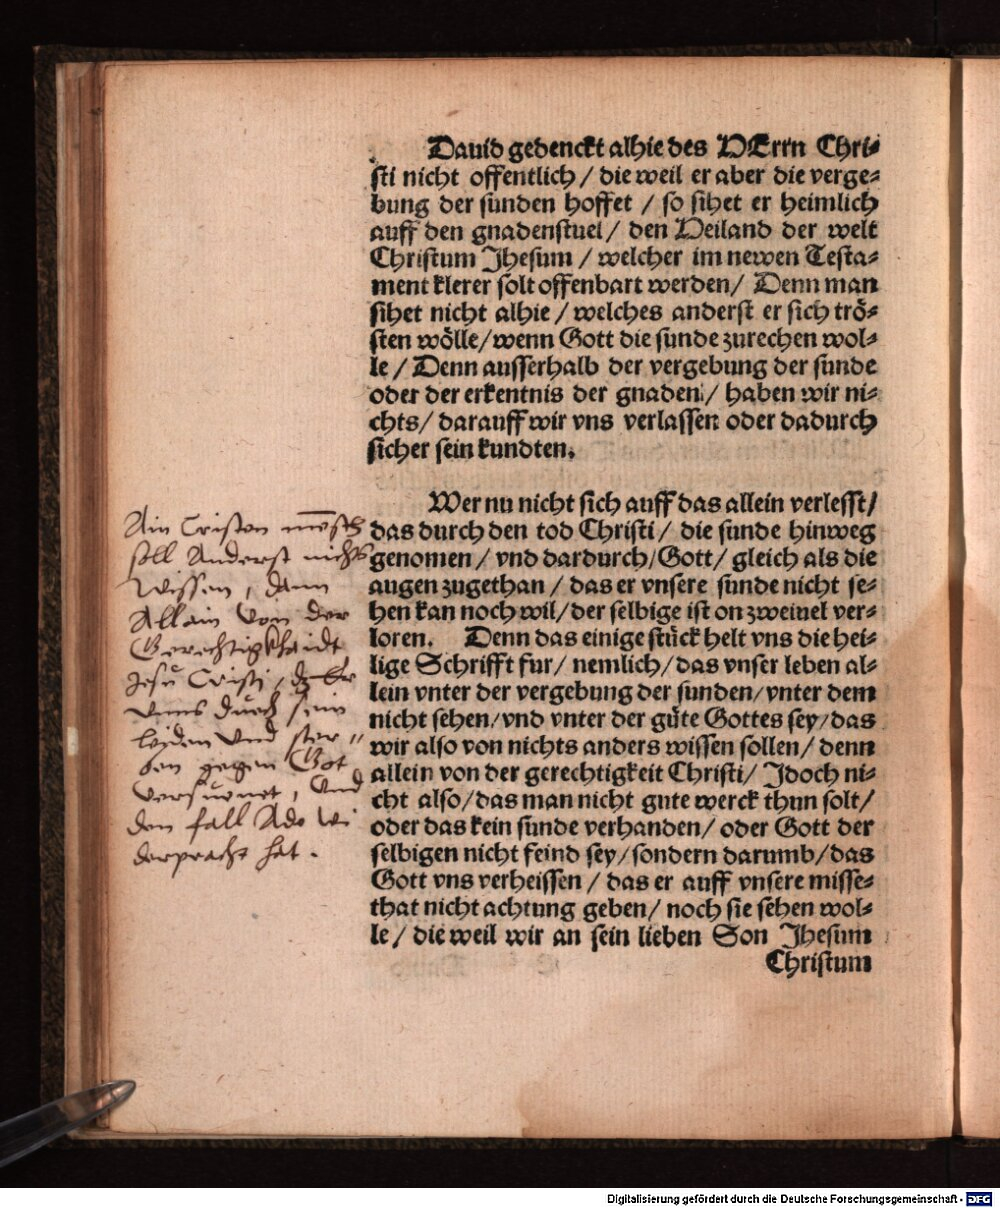 Dauid gedenckt alhie des HErrn Chri⸗
sti nicht offentlich / die weil er aber die verge⸗
bung der sunden hoffet / so sihet er heimlich
auff den gnadenstuel / den Heiland der welt
Christum Jhesum / welcher im newen Testa⸗
ment klerer solt offenbart werden / Denn man
sihet nicht alhie / welches anderst er sich trö⸗
sten wölle / wenn Gott die sunde zurechen wol⸗
le / Denn ausserhalb der vergebung der sunde
oder der erkentnis der gnaden / haben wir ni⸗
chts / darauff wir vns verlassen oder dadurch
sicher sein kundten.
Wer nu nicht sich auff das allein verlesst /
das durch den tod Christi / die sunde hinweg
genomen / vnd dardurch / Gott / gleich als die
augen zugethan / das er vnsere sunde nicht se⸗
hen kan noch wil / der selbige ist on zweiuel ver⸗
loren. Denn das einige stück helt vns die hei⸗
lige Schrifft fur / nemlich / das vnser leben al⸗
lein vnter der vergebung der sunden / vnter dem
nicht sehen / vnd vnter der güte Gottes sey / das
wir also von nichts anders wissen sollen / denn
allein von der gerechtigkeit Christi / Jdoch ni⸗
cht also / das man nicht gute werck thun solt /
oder das kein sunde verhanden / oder Gott der
selbigen nicht feind sey / sondern darumb / das
Gott vns verheissen / das er auff vnsere misse⸗
that nicht achtung geben / noch sie sehen wol⸗
le / die weil wir an sein lieben Son Jhesum
Christum
Ain Cristen mensch
soll Anderst nichts
Wissen, dann
Allain von der
Gerechtigkhaidt
Jesu Cristj, der Er
vnns durch sein
leiden vnd ster„
ben gegen Got
versuenet, vnd
den fall Ade wi
derpracht hat.
Digitalisierung gefördert durch die Deutsche Forschungsgemeinschaft - DFG